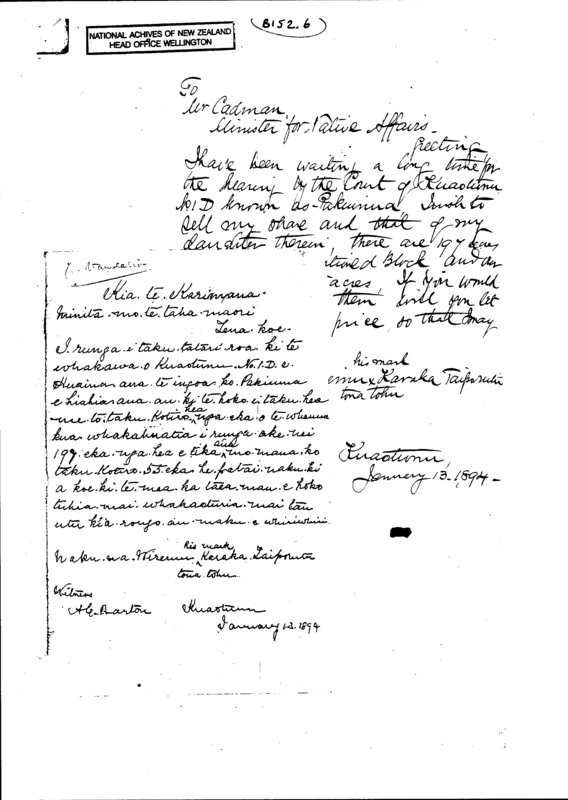 NATIONAL ACHIVES OF NEW ZEALAND
HEAD OFFICE WELLINGTON
B152.6
To
Mr Cadman,
Minister for Native Affairs.
Greeting
I have been waiting a long time for
the hearing by the Court of Kuaotunu
No 1D known as Pakiunua I wish to
sell my share and that of my
daughter therein, there are 197 acres
tioned Block and
acres, If you would
them will you let
price, so that I may
his mark
x Karaka Taiporutu
tona tohu
Kuaotunu,
January 13. 1894 -
Kia te Karimana.
Minita mo te taha maori
Tena koe.
I runga i taku tatari roa ki te
whakawa o Kuaotunu No.1.D. e
Huaina ana te ingoa ko Pakiunua
e hiahia ana au ki te hoko i taku hea
me to taku Kotiro hea nga eka o te whenua
kua whakahuatia i runga ake nei
197 eka nga hea e tika ana mo maua ko
taku Kotiro 55 eka he patai naku ki
a koe ki te mea ka taea mau e hoko
tuhia mai whakaaturia mai tau
utu kia rongo au maku e whiriwhiri
Naku na Wiremu his mark Karaka Taiporutu
tona tohu
Witness
A.G. Barton Kuaotunu
January 13. 1894